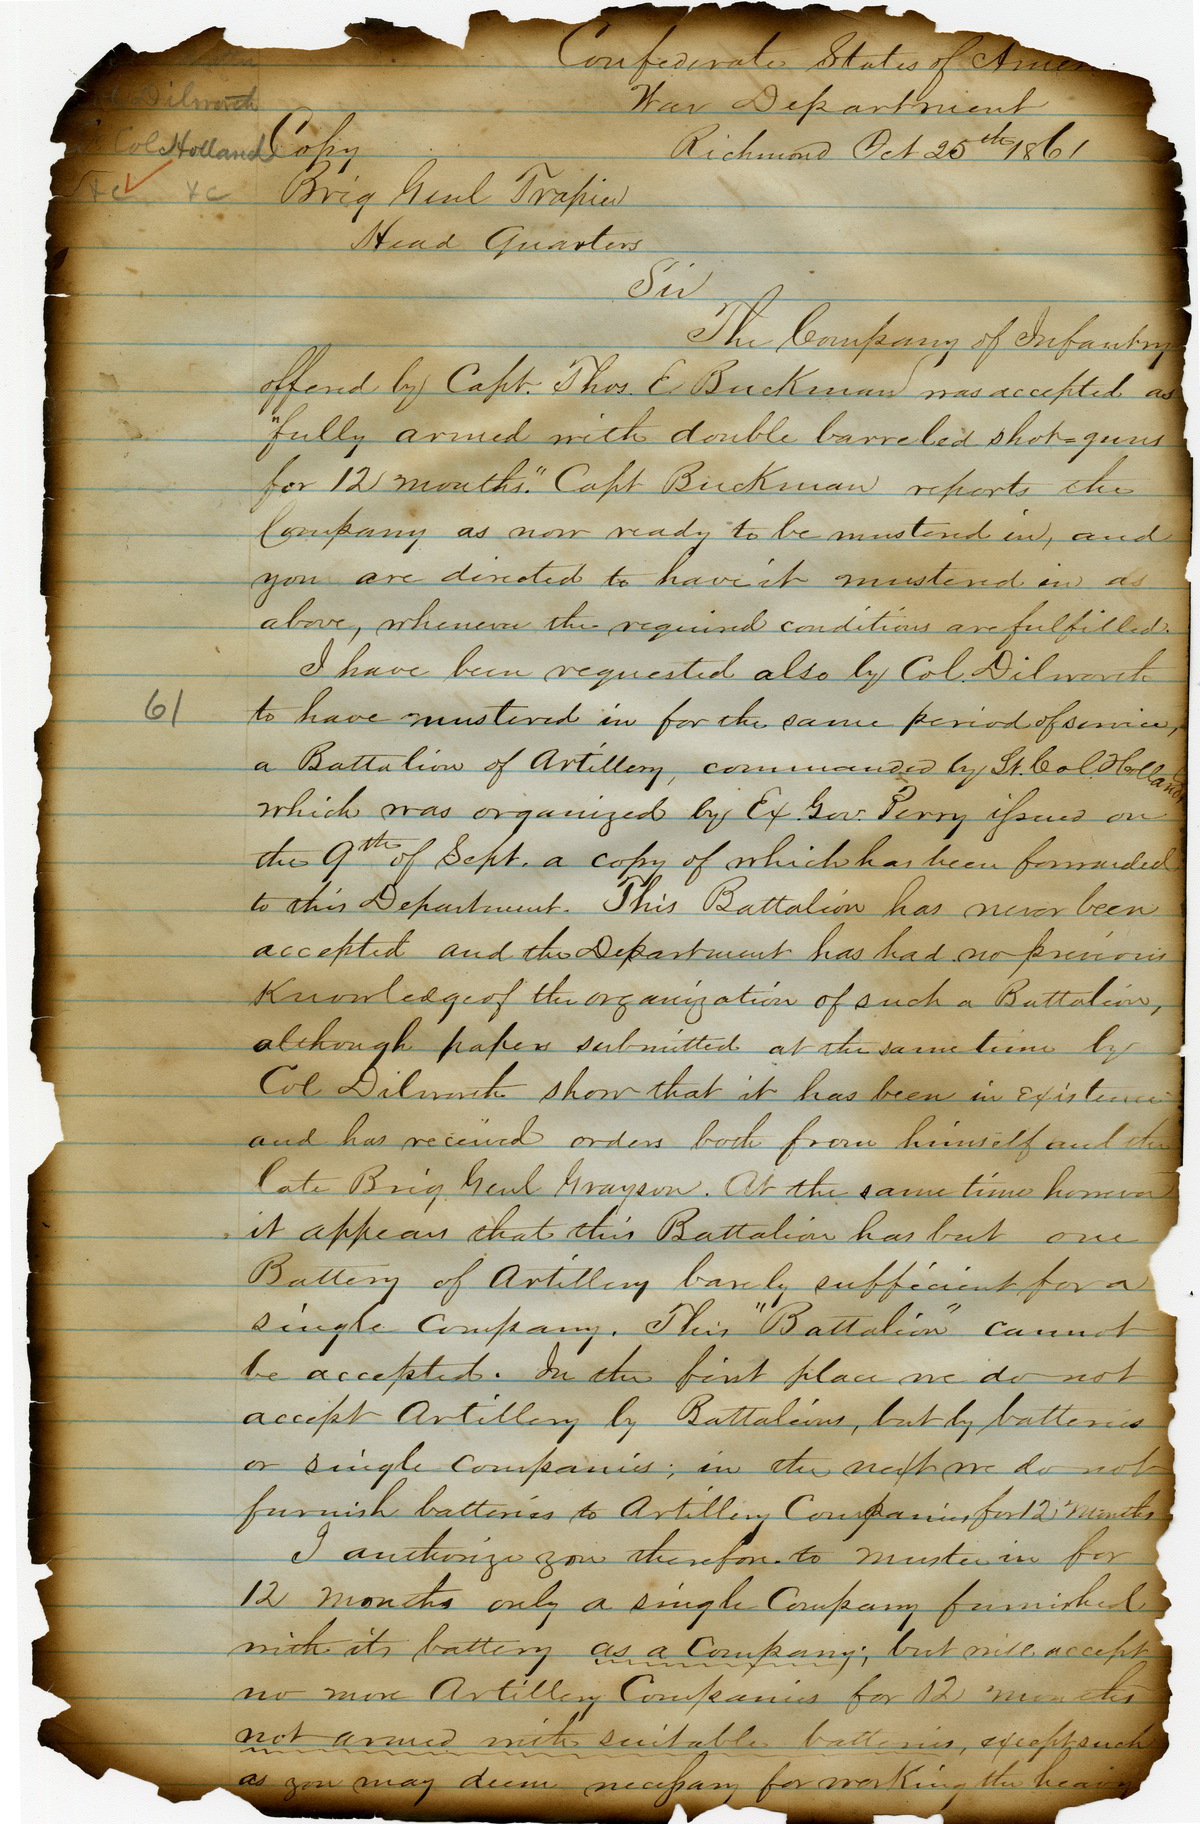 Confederate States of Amer
War Department
Richmond Oct 25th 1861
Dilworth
Col Holland
&c &c
Copy
Brig Genl Trapier
Head Quarters
Sir
The Company of Infantry
offered by Capt. Thos. E. Buckman was accepted as
"fully armed with double barreled shot=guns
for 12 months." Capt Buckman reports the
Company as now ready to be mustered in, and
you are directed to have it mustered in as
above, whenever the required conditions are fulfilled.
I have been requested also by Col. Dilworth
61
to have mustered in for the same period of service,
a Battalion of Artillery, commanded by Lt. Col. Holland
which was organized by Ex. Gov. Perry issued on
the 9th of Sept. a copy of which has been forwarded
to this Department. This Battalion has never been
accepted and the Department has had no previous
Knowledge of the organization of such a Battalion,
although papers submitted at the same time by
Col Dilworth show that it has been in existence
and has received orders both from himself and the
late Brig. Genl Grayson. At the same time however
it appears that this Battalion has but one
Battery of Artillery barely sufficient for a
single Company. This "Battalion" cannot
be accepted. In the first place we do not
accept Artillery by Battalions, but by batteries
or single companies; in the next we do not
furnish batteries to Artillery Companies for 12 months
I authorize you therefore to muster in for
12 months only a single Company furnished
with its battery as a Company; but will accept
no more Artillery Companies for 12 months
not armed with suitable batteries, except such
as you may deem necessary for working the heavy